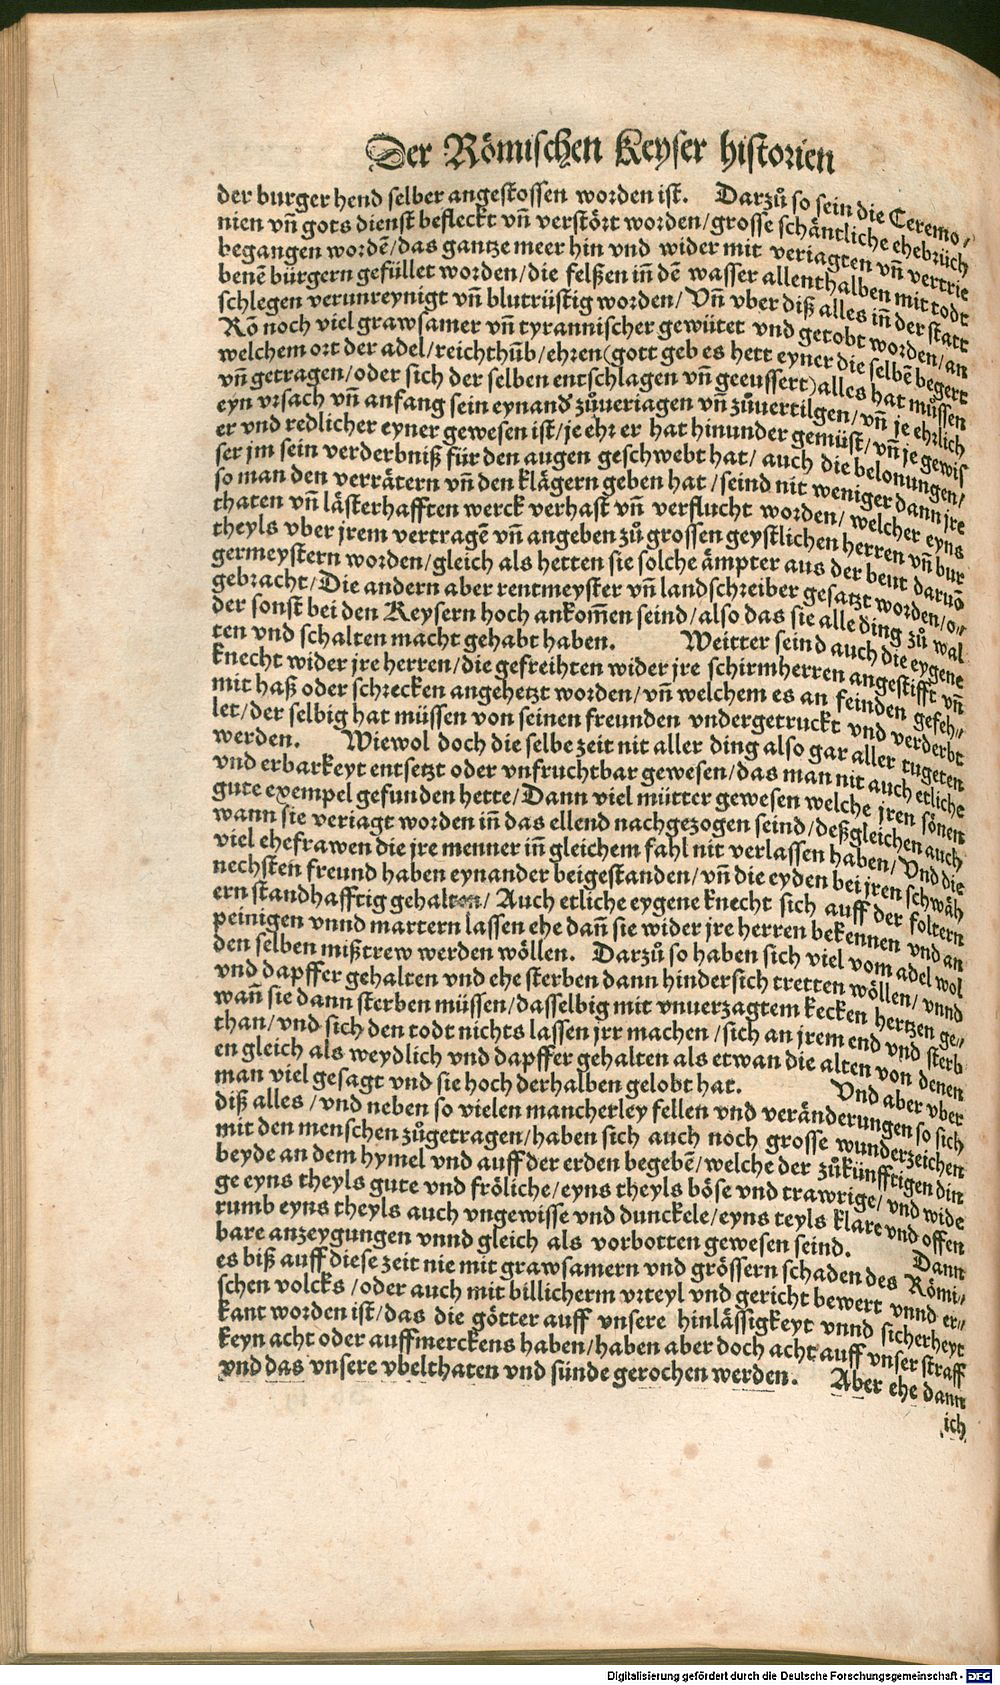 Der Römischen Keyser historien
der burger hend selber angestossen worden ist. Darzů so sein die Ceremo⸗
nien vñ gots dienst befleckt vñ verstört worden/grosse schäntliche ehebrüch
begangen wordẽ/das gantze meer hin vnd wider mit veriagten vñ vertrie
benẽ bürgern gefüllet worden/die felßen iñ dẽ wasser allenthalben mit todt
schlegen verunreynigt vñ blutrüstig worden/Vñ vber diß alles iñ der statt
Rõ noch viel grawsamer vñ tyrannischer gewütet vnd getobt worden/an
welchem ort der adel/reichthũb/ehren(gott geb es hett eyner die selbẽ begert
vñ getragen/oder sich der selben entschlagen vñ geeussert)alles hat müssen
eyn vrsach vñ anfang sein eynand̕ zůueriagen vñ zůuertilgen/vñ je ehrlich
er vnd redlicher eyner gewesen ist/je ehr er hat hinunder gemüst/vñ je gewis
ser jm sein verderbniß für den augen geschwebt hat/auch die belonungen/
so man den verrätern vñ den klägern geben hat/seind nit weniger dann jre
thaten vñ lästerhafften werck verhast vñ verflucht worden/welcher eyns
theyls vber jrem vertragẽ vñ angeben zů grossen geystlichen herren vñ bur
germeystern worden/gleich als hetten sie solche ämpter aus der beut daruõ
gebracht/Die andern aber rentmeyster vñ landschreiber gesatzt worden/o⸗
der sonst bei den Keysern hoch ankom̃en seind/also das sie alle ding zů wal
ten vnd schalten macht gehabt haben. Weitter seind auch die eygene
knecht wider jre herren/die gefreihten wider jre schirmherren angestifft vñ
mit haß oder schrecken angehetzt worden/vñ welchem es an feinden gefeh⸗
let/der selbig hat müssen von seinen freunden vndergetruckt vnd verderbt
werden. Wiewol doch die selbe zeit nit aller ding also gar aller tugeten
vnd erbarkeyt entsetzt oder vnfruchtbar gewesen/das man nit auch etliche
gute exempel gefunden hette/Dann viel mütter gewesen welche jren sönen
wann sie veriagt worden iñ das ellend nachgezogen seind/deßgleichen auch
viel ehefrawen die jre menner iñ gleichem fahl nit verlassen haben/Vnd die
nechsten freund haben eynander beigestanden/vñ die eyden bei jren schwäh
ern standhafftig gehalten/Auch etliche eygene knecht sich auff der foltern
peinigen vnnd martern lassen ehe dañ sie wider jre herren bekennen vnd an
den selben mißtrew werden wöllen. Darzů so haben sich viel vom adel wol
vnd dapffer gehalten vnd ehe sterben dann hindersich tretten wöllen/vnnd
wañ sie dann sterben müssen/dasselbig mit vnuerzagtem kecken hertzen ge⸗
than/vnd sich den todt nichts lassen jrr machen/sich an jrem end vnd sterb
en gleich als weydlich vnd dapffer gehalten als etwan die alten von denen
man viel gesagt vnd sie hoch derhalben gelobt hat. Vnd aber vber
diß alles/vnd neben so vielen mancherley fellen vnd veränderungen so sich
mit den menschen zůgetragen/haben sich auch noch grosse wunderzeichen
beyde an dem hymel vnd auff der erden begebẽ/welche der zůkünfftigen din
ge eyns theyls gute vnd fröliche/eyns theyls böse vnd trawrige/vnd wide
rumb eyns theyls auch vngewisse vnd dunckele/eyns teyls klare vnd offen
bare anzeygungen vnnd gleich als vorbotten gewesen seind. Dann
es biß auff diese zeit nie mit grawsamern vnd grössern schaden des Römi⸗
schen volcks/oder auch mit billicherm vrteyl vnd gericht bewert vnnd er⸗
kant worden ist/das die götter auff vnsere hinlässigkeyt vnnd sicherheyt
keyn acht oder auffmerckens haben/haben aber doch acht auff vnser straff
vnd das vnsere vbelthaten vnd sünde gerochen werden. Aber ehe dann
ich
Digitalisierung gefördert durch die Deutsche Forschungsgemeinschaft - DFG